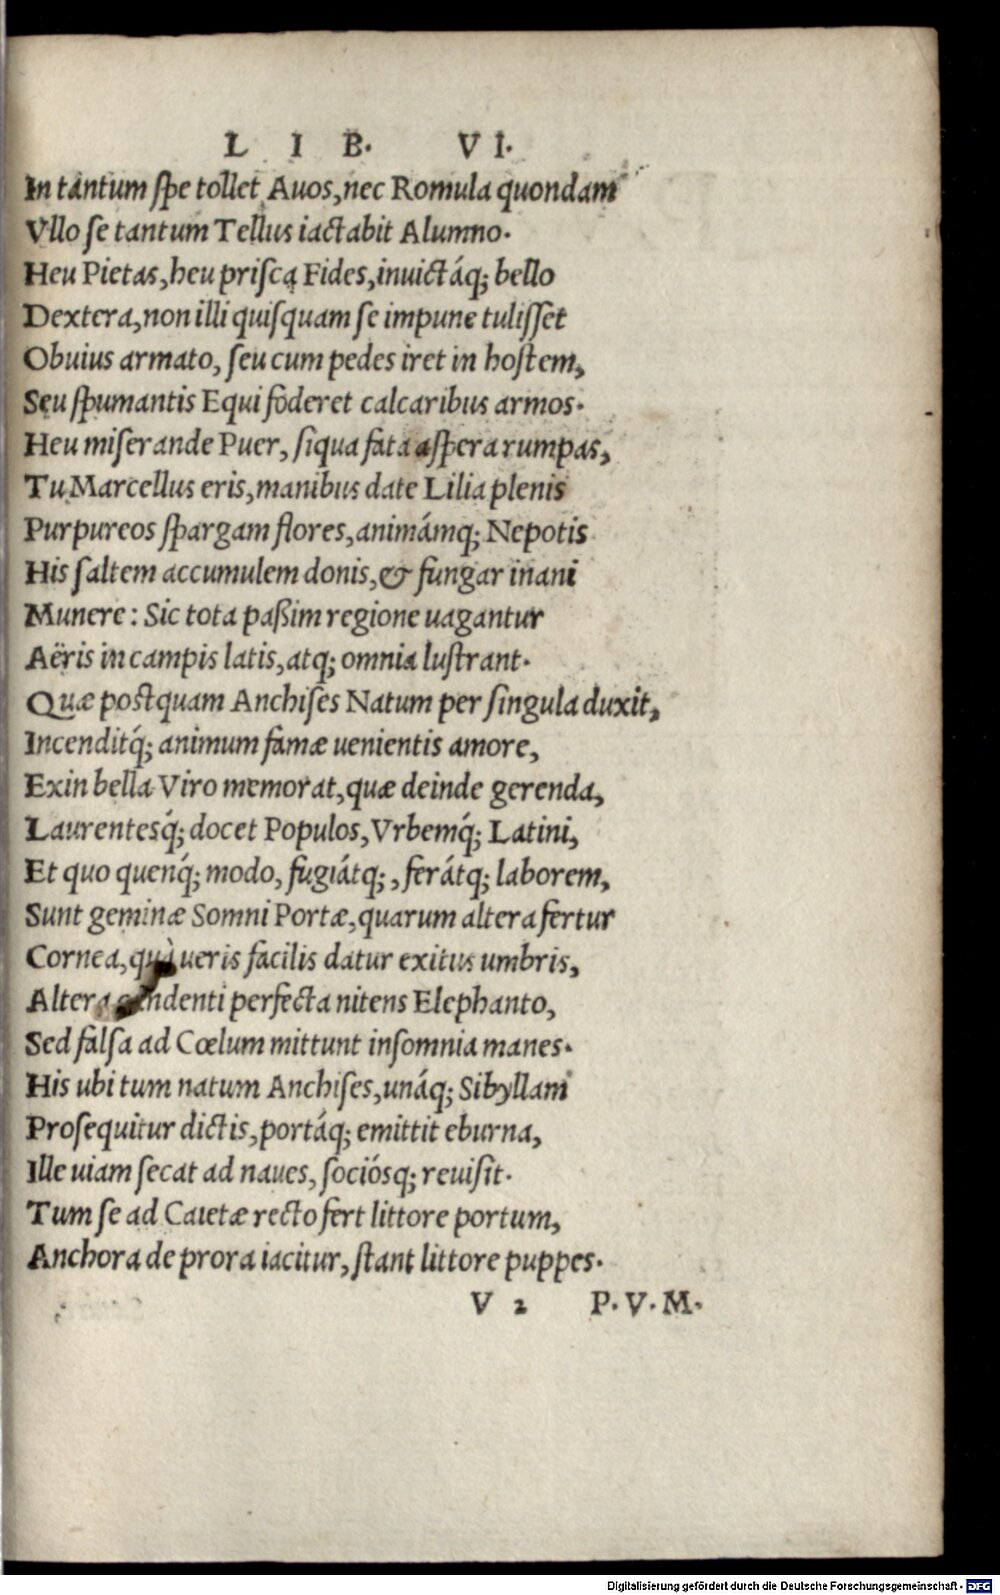 L I B. V I.
In tantum ſpe tollet Auos, nec Romula quondam
Vllo ſe tantum Tellus iactabit Alumno.
Heu Pietas, heu priſca Fides, inuictáq; bello
Dextera, non illi quiſquam ſe impune tuliſſet
Obuius armato, ſeu cum pedes iret in hoſtem,
Seu ſpumantis Equi foderet calcaribus armos.
Heu miſerande Puer, ſiqua fata aſpera rumpas,
Tu Marcellus eris, manibus date Lilia plenis
Purpureos ſpargam flores, animámq; Nepotis
His ſaltem accumulem donis, & fungar inani
Munere: Sic tota paßim regione uagantur
Aëris in campis latis, atq; omnia luſtrant.
Quæ poſtquam Anchiſes Natum per ſingula duxit,
Incenditq́; animum famæ uenientis amore,
Exin bella Viro memorat, quæ deinde gerenda,
Laurentesq́; docet Populos, Vrbemq́; Latini,
Et quo quenq́; modo, fugiátq;, ferátq; laborem,
Sunt geminæ Somni Portæ, quarum altera fertur
Cornea, quà ueris facilis datur exitus umbris,
Altera candenti perfecta nitens Elephanto,
Sed falſa ad Cœlum mittunt inſomnia manes.
His ubi tum natum Anchiſes, unáq; Sibyllam
Proſequitur dictis, portáq; emittit eburna,
Ille uiam ſecat ad naues, ſociósq; reuiſit.
Tum ſe ad Caietæ recto fert littore portum,
Anchora de prora iacitur, ſtant littore puppes.
V 2 P. V. M.
Digitalisierung gefördert durch die Deutsche Forschungsgemeinschaft - DFG